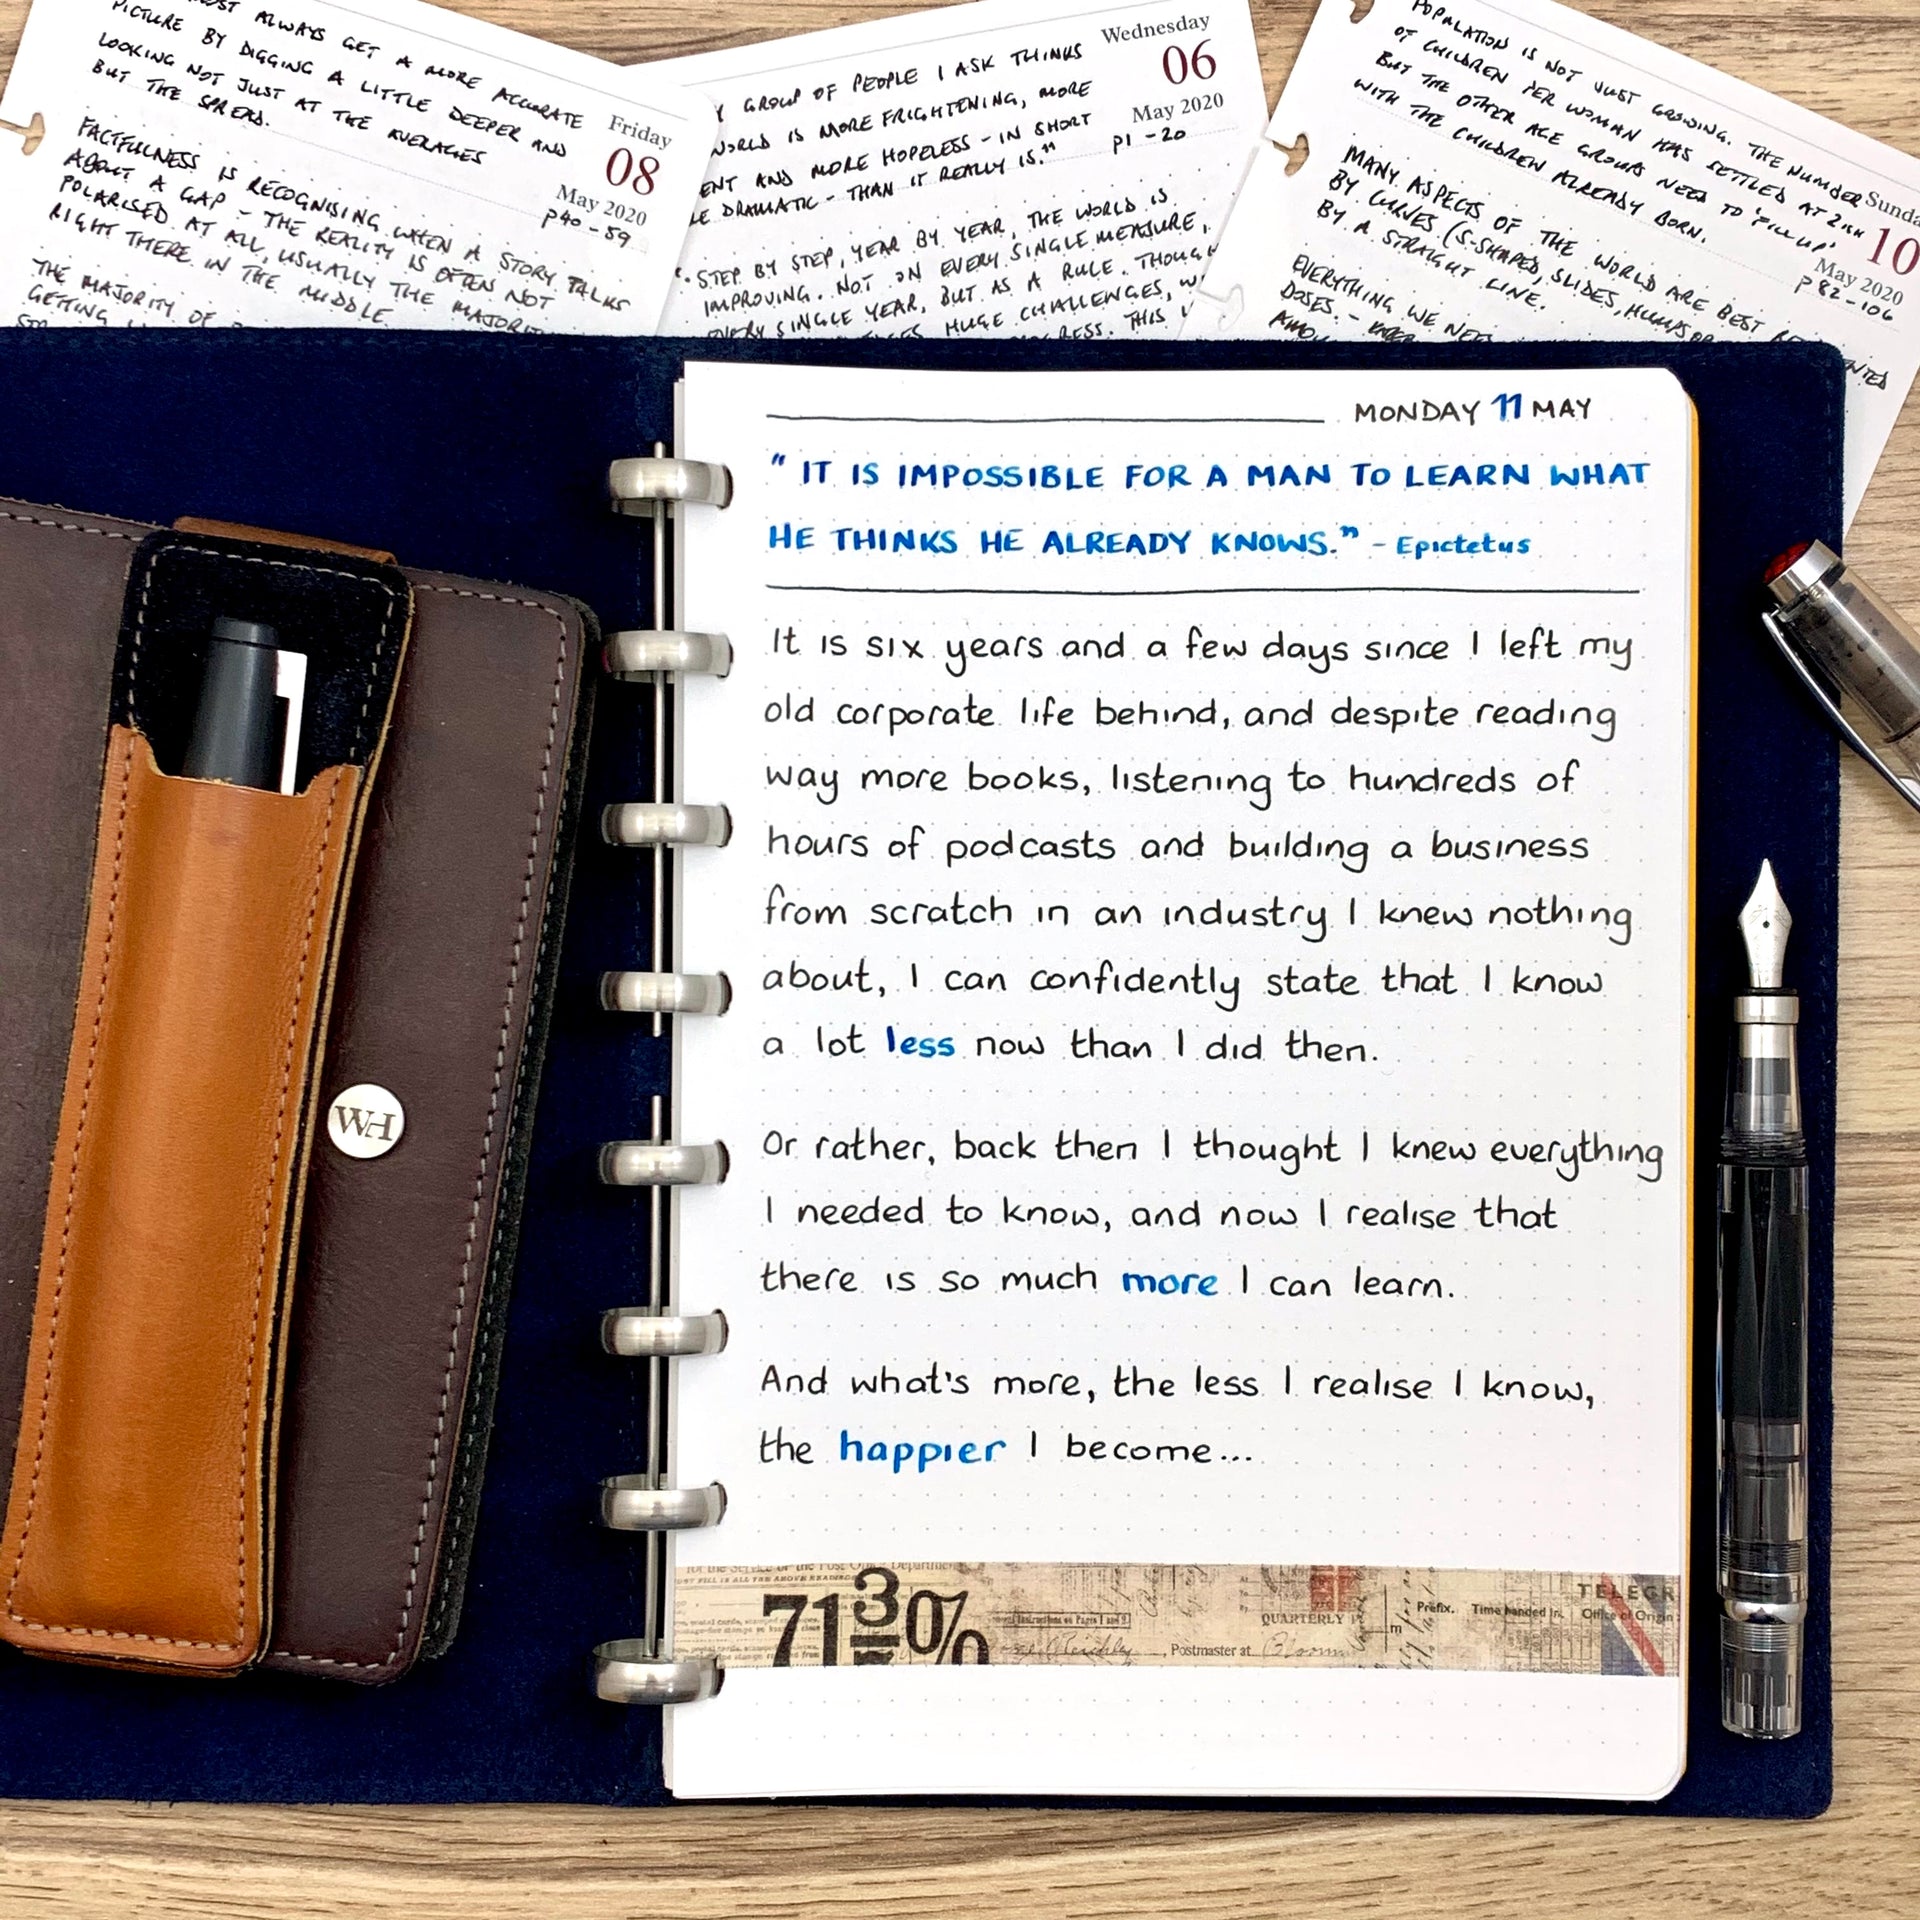 ALWAYS GET A MORE ACCURATE
PICTURE BY DIGGING A LITTLE DEEPER AND
LOOKING NOT JUST AT THE AVERAGES
BUT THE SPREAD.
Friday
08
May 2020
P40-59
FACTFULNESS IS RECOGNISING WHEN A STORY TALKS
ABOUT A GAP - THE REALITY IS OFTEN NOT
POLARISED AT ALL, USUALLY THE MAJORITY
RIGHT THERE IN THE MIDDLE.
THE MAJORITY OF
GETTING
Wednesday
06
May 2020
P1-20
GROUP OF PEOPLE I ASK THINKS
WORLD IS MORE FRIGHTENING, MORE
AND MORE HOPELESS - IN SHORT
DRAMATIC - THAN IT REALLY IS."
STEP BY STEP, YEAR BY YEAR, THE WORLD IS
IMPROVING. NOT ON EVERY SINGLE MEASURE,
EVERY SINGLE YEAR, BUT AS A RULE. THOUGH
HUGE CHALLENGES,
THIS
POPULATION IS NOT JUST GROWING. THE NUMBER
OF CHILDREN PER WOMAN HAS SETTLED AT
BUT THE OTHER AGE GROUPS NEED TO 'FILL UP'
WITH THE CHILDREN ALREADY BORN.
10
May 2020
P82-106
MANY ASPECTS OF THE WORLD ARE BEST
BY CURVES (S-SHAPED, SLIDES, HUMPS
BY A STRAIGHT LINE.
EVERYTHING WE NEED
DOSES. -
MONDAY 11 MAY
" IT IS IMPOSSIBLE FOR A MAN TO LEARN WHAT
HE THINKS HE ALREADY KNOWS." - Epictetus
It is six years and a few days since I left my
old corporate life behind, and despite reading
way more books, listening to hundreds of
hours of podcasts and building a business
from scratch in an industry I knew nothing
about, I can confidently state that I know
a lot less now than I did then.
Or rather, back then I thought I knew everything
I needed to know, and now I realise that
there is so much more I can learn.
And what's more, the less I realise I know,
the happier I become...
WH
713%
QUARTERLY
Prefix. Time handed in.
TELEGR
Office of Origin
Postmaster at